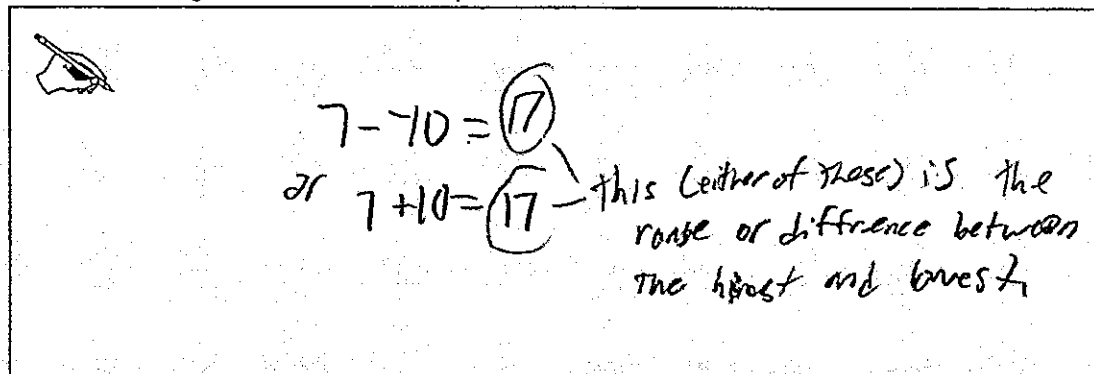 7 - -10 = 17
or 7 + 10 = 17 this (either of these) is the
range or diffrence between
the hihest and lowest.